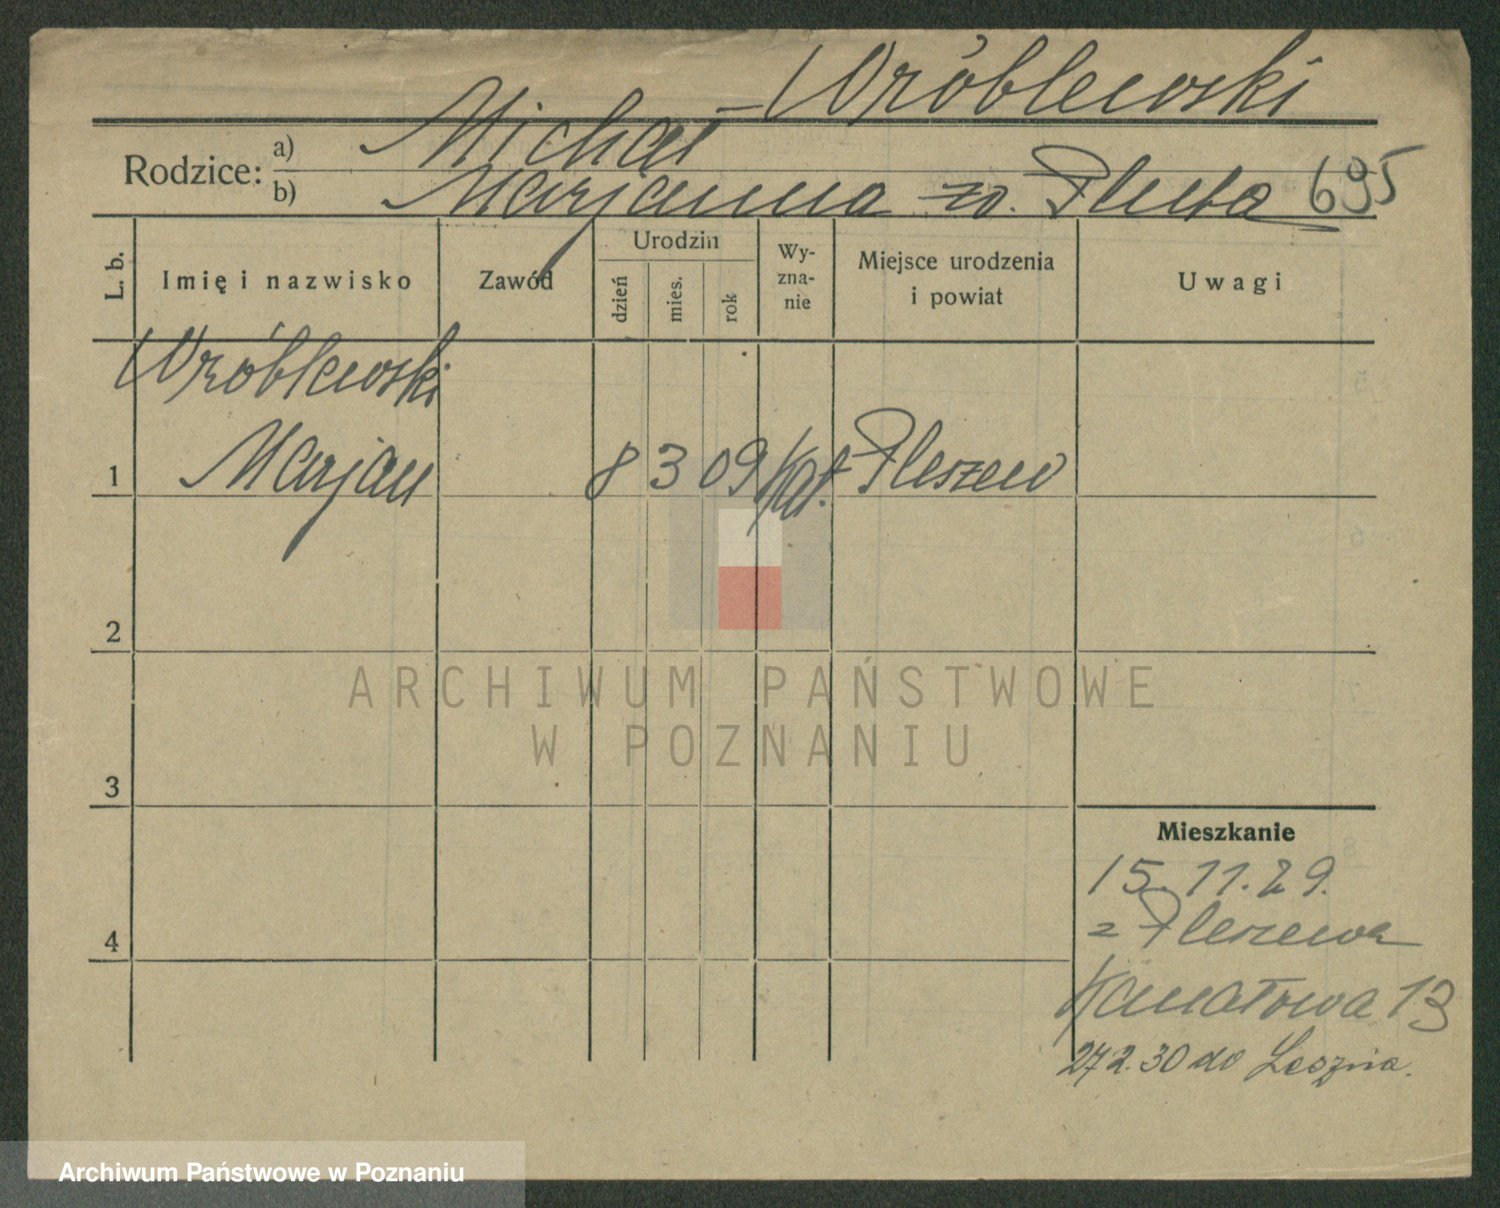 Wróblewski
Rodzice: a) Michał
b) Marjanna zd. Pluta 695
L. b.
Imię i nazwisko
Zawód
Urodzin
dzień
mies.
rok
Wy-
zna-
nie
Miejsce urodzenia
i powiat
Uwagi
Wróblewski
1 Marjan 8 3 09 Kat. Pleszew
2
3
4
Mieszkanie
15.11.29.
z Pleszewa
Kanałowa 13
27 2.30 do Leszna.
ARCHIWUM PAŃSTWOWE
W POZNANIU
Archiwum Państwowe w Poznaniu